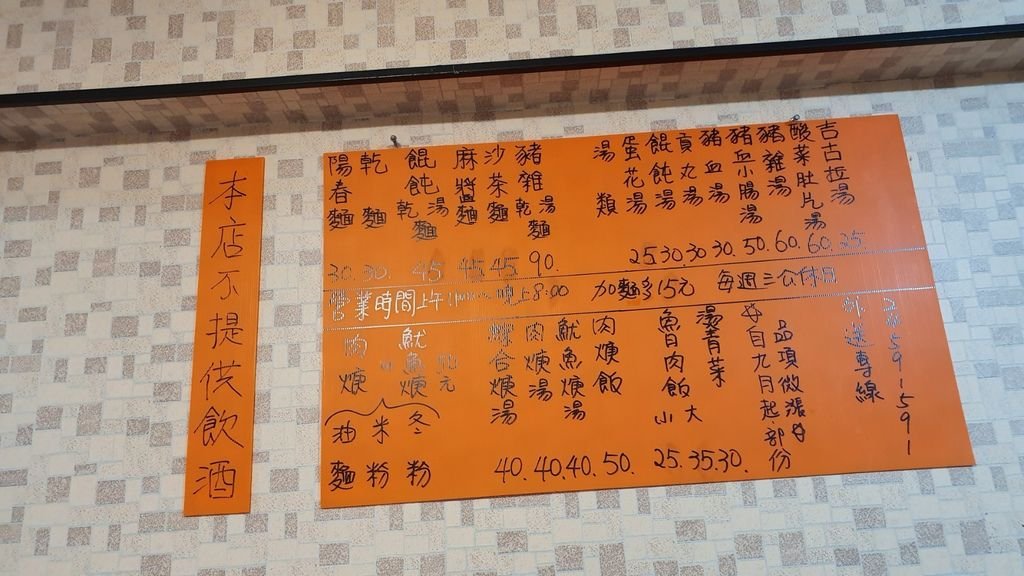 本店不提供飲酒
陽春麵 30.
乾麵 30.
餛飩乾湯麵 45
麻醬麵 45.
沙茶麵 45
豬雜乾湯麵 90.
湯類
蛋花湯 25
餛飩湯 30
貢丸湯 30
豬血湯 30.
豬血小腸湯 50.
豬雜湯 60.
酸菜肚片湯 60.
吉古拉湯 35.
營業時間上午 晚上8:00 加麵多15元 每週三公休日
肉焿
魷魚焿
元
油麵 米粉 冬粉
綜合焿湯 40.
肉焿湯 40
魷魚焿湯 40.
肉焿飯 50.
魯白肉飯 小 25. 大 35.
湯青菜 30.
自九月起部份
品項微漲
外送專線
2459-1591